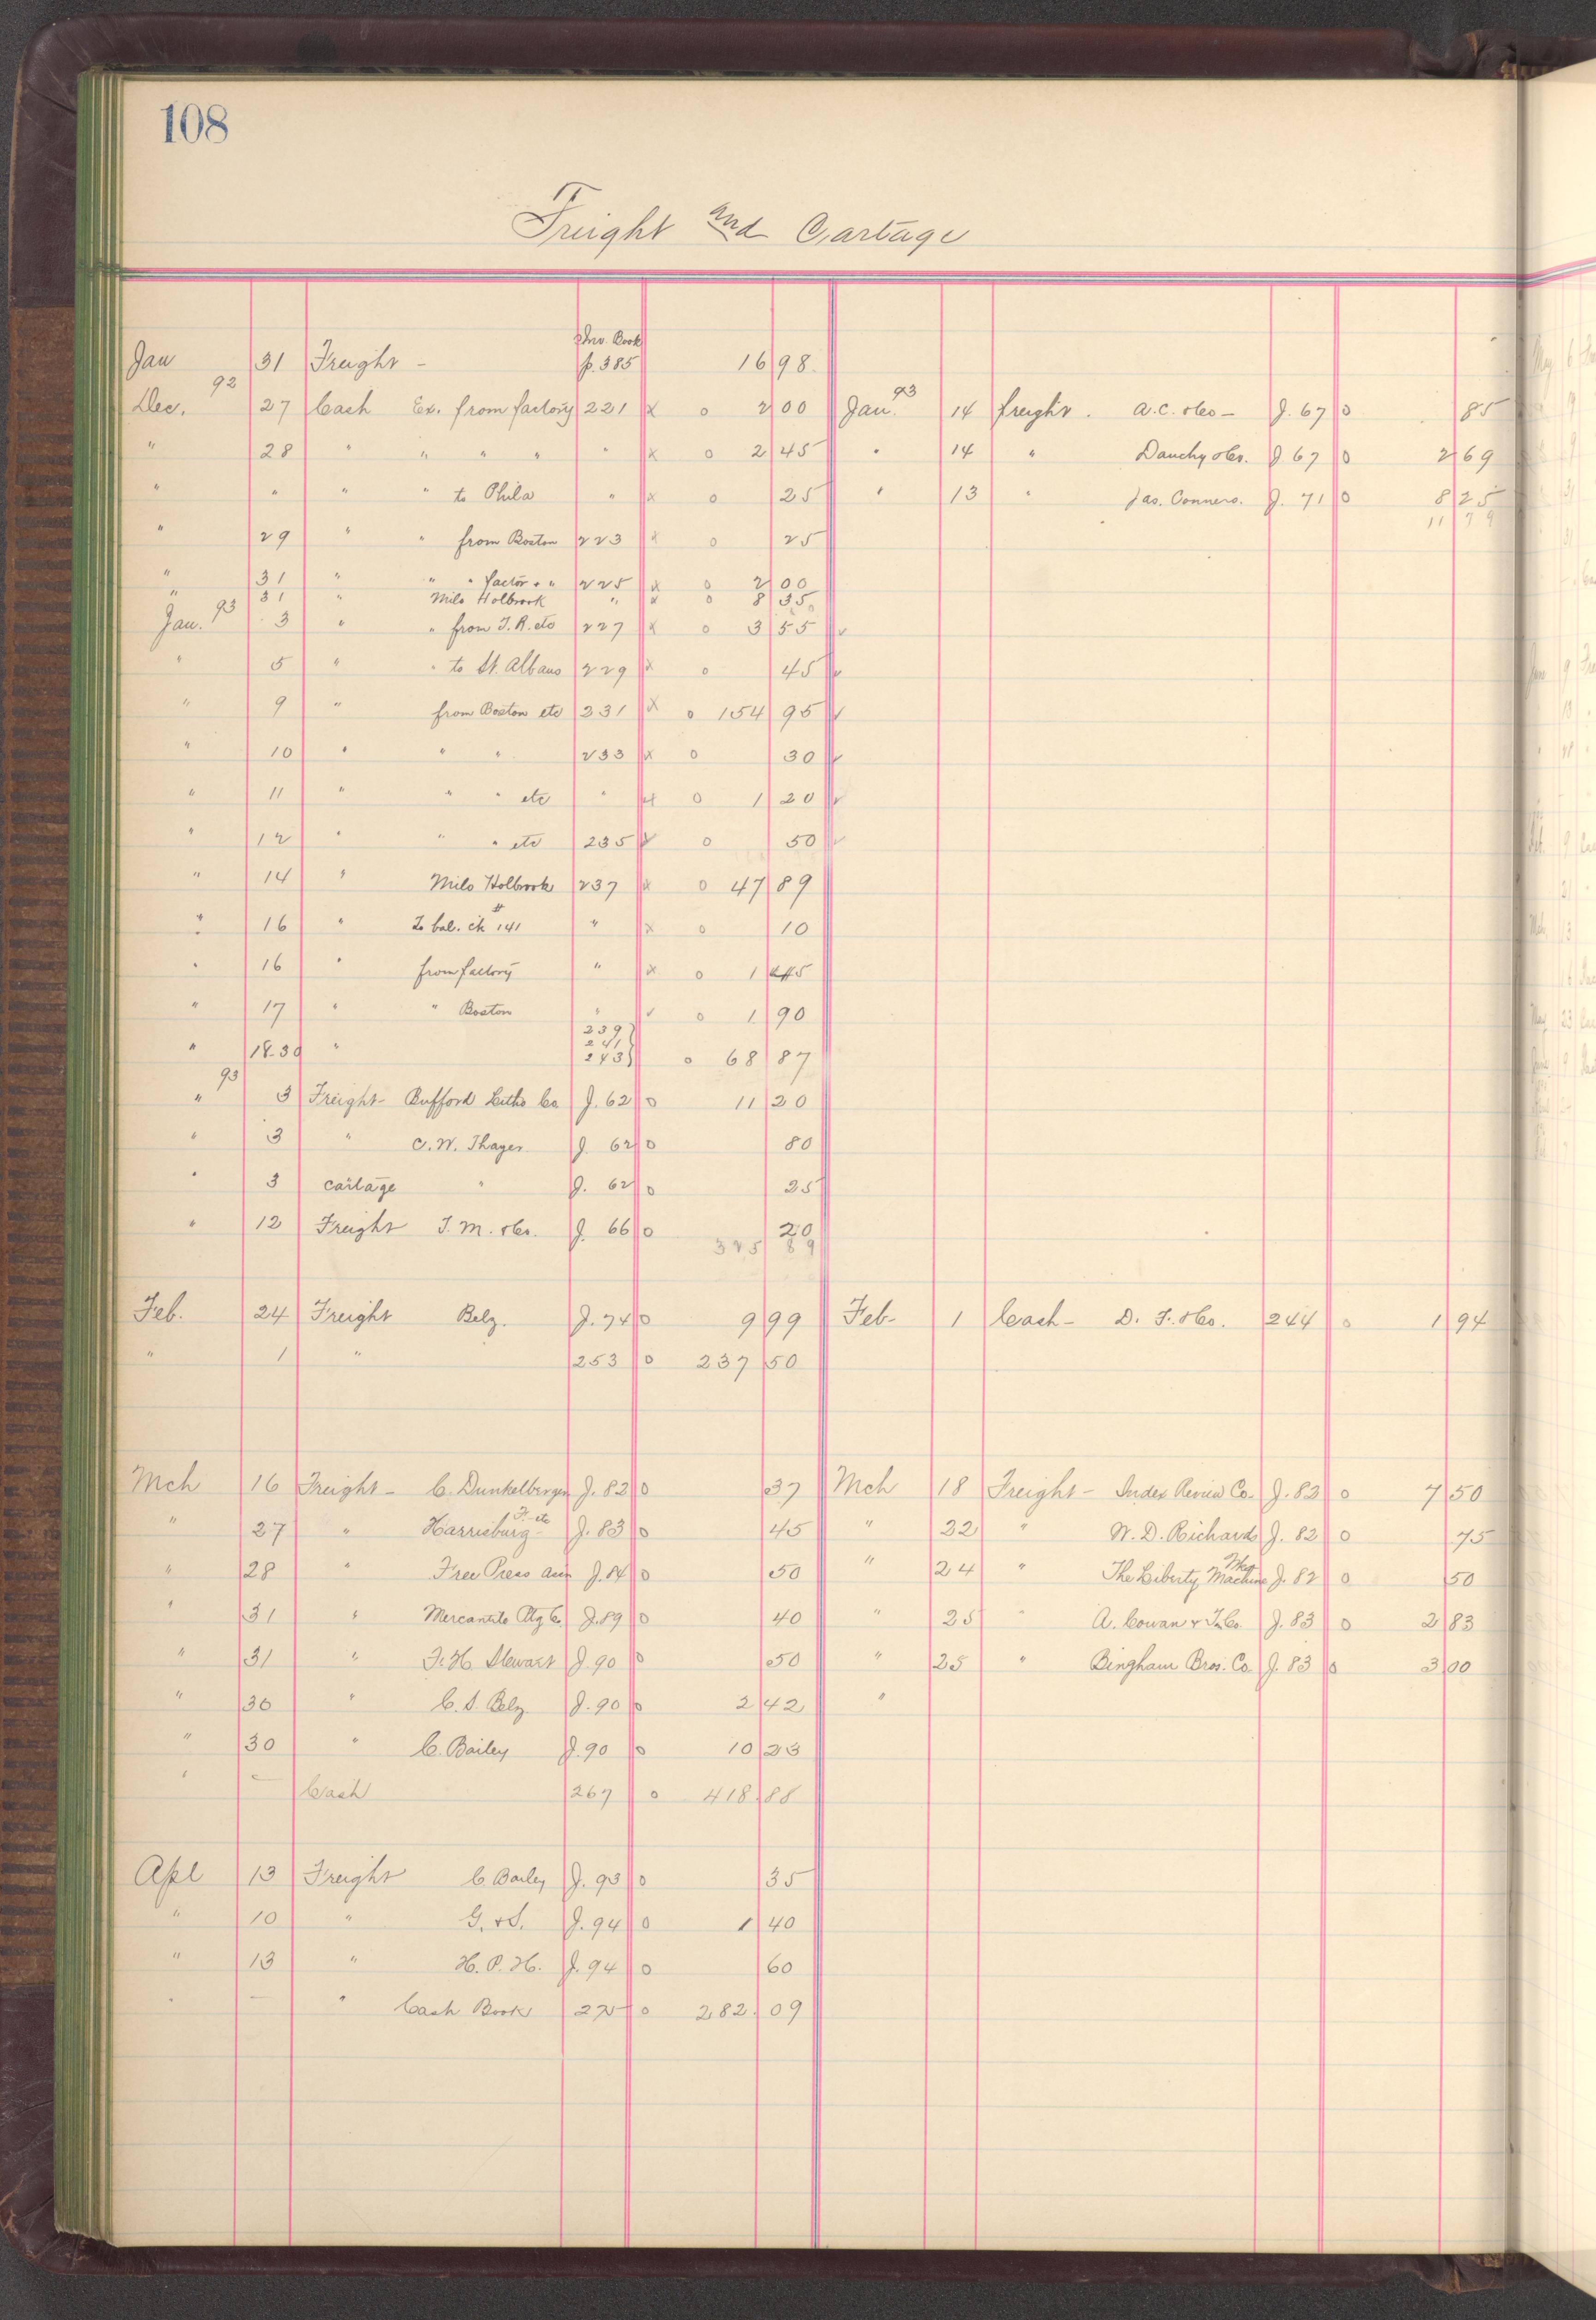 108
Freight and Cartage
Inv. Book
Jan 31 Freight - p. 385 16 98
Dec. 92 27 Cash Ex. from factory 221 x o 2 00 Jan. 93 14 freight. A.C. &Co - J. 67 o 85
" 28 " " " " " x o 2 45 " 14 " Dauchy &Co. J 67 o 2 69
" " " " to Phila " x o 25 " 13 " Jas. Conners. J. 71 o 8 25
11 79
" 29 " " from Boston 223 x o 25
" 31 " " " factory " 225 x o 2 00
" 31 " Milo Holbrook " x o 8 35
Jan. 93 3 " " from T.R. etc 227 x o 3 55
" 5 " " to St. Albans 229 x o 45
" 9 " from Boston etc 231 x o 154 95
" 10 " " " 233 x o 30
" 11 " " " etc " x o 1 20
" 12 " " " etc 235 x o 50
" 14 " Milo Holbrook 237 x o 47 89
" 16 " To bal. ck # 141 " x o 10
" 16 " from factory " x o 1 45
" 17 " " Boston " o 1 90
239
241
" 18-30 " 243 o 68 87
" 93 3 Freight- Bufford Litho Co J. 62 o 11 20
" 3 " C.W. Thayer J. 62 o 80
" 3 cartage " J. 62 o 25
" 12 Freight T.M. &Co. J. 66 o 20
325 89
Feb. 24 Freight Belz. J. 74 o 9 99 Feb. 1 Cash - D. F. &Co. 244 o 1 94
" 1 " 253 o 237 50
Mch 16 Freight - C. Dunkelberger J. 82 o 37 Mch 18 Freight - Index Review Co. J. 82 o 7 50
" 27 " Harrisburg J. 83 o 45 " 22 " W. D. Richards J. 82 o 75
" 28 " Free Press Assn J. 84 o 50 " 24 " The Liberty Machine Wks J. 82 o 50
" 31 " Mercantile Ptg Co. J. 89 o 40 " 25 " A. Cowan & Co. J. 83 o 2 83
" 31 " F. H. Stewart J. 90 o 50 " 25 " Bingham Bros. Co. J. 83 o 3 00
" 30 " C. S. Belz J. 90 o 2 42 "
" 30 " C. Bailey J. 90 o 10 23
" - Cash 267 o 418 88
Apl 13 Freight C Bailey J. 93 o 35
" 10 " G. &S. J. 94 o 1 40
" 13 " H. P. H. J. 94 o 60
" - " Cash Book o 282 09